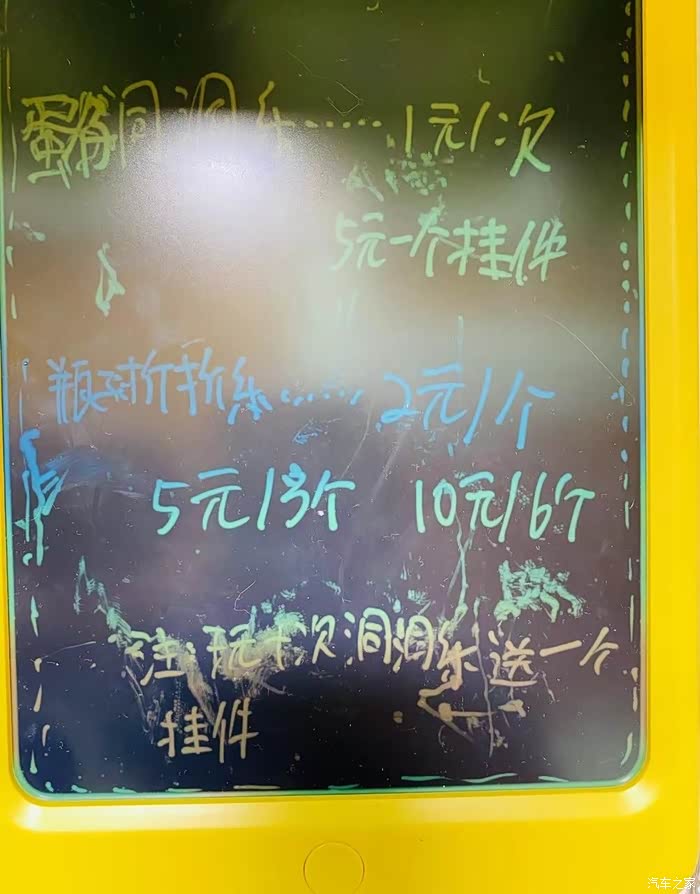 洞洞乐……1元/次
5元一个挂件
瓶对折折乐……2元/1个
5元/3个 10元/6个
注:玩十次洞洞乐送一个
挂件
汽车之家